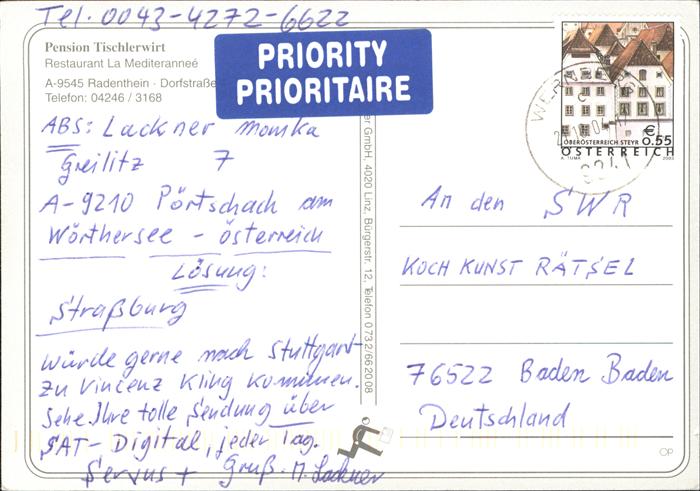 Tel. 0043-4272-6622
Pension Tischlerwirt
Restaurant La Mediteranneé
A-9545 Radenthein · Dorfstraße
Telefon: 04246 / 3168
PRIORITY
PRIORITAIRE
ABS: Lackner Monika
Greilitz 7
A-9210 Pörtschach am
Wörthersee - Österreich
Lösung:
Straßburg
Würde gerne nach Stuttgart
zu Vincenz Kling kommen.
Sehe Ihre tolle Sendung über
SAT-Digital, jeder Tag.
Servus + Gruß. M. Lackner
GmbH, 4020 Linz, Bürgerstr. 12, Telefon 0732/662008
€ 0.55
OBERÖSTERREICH STEYR
ÖSTERREICH
A. TUMA 2003
An den SWR
KOCH KUNST RÄTSEL
76522 Baden Baden
Deutschland
OP